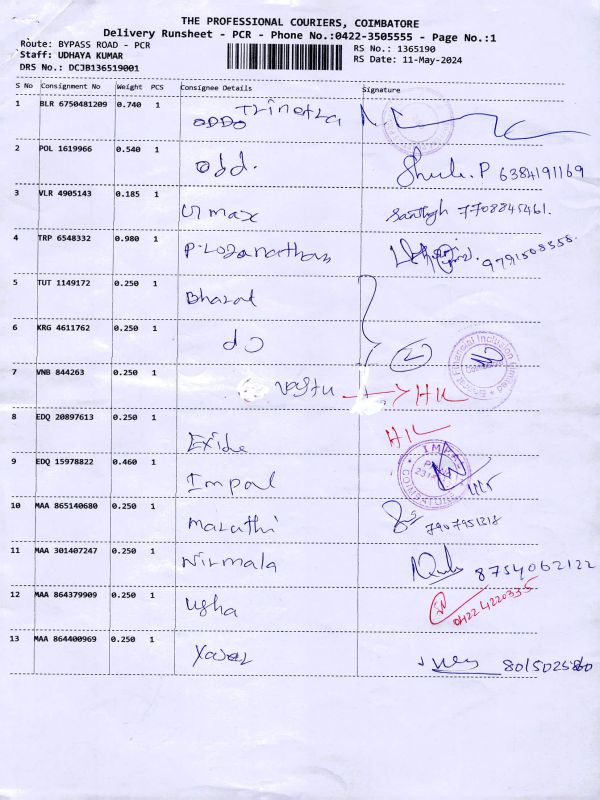 THE PROFESSIONAL COURIERS, COIMBATORE
Delivery Runsheet - PCR - Phone No.:0422-3505555 - Page No.:1
Route: BYPASS ROAD - PCR
RS No.: 1365190
Staff: UDHAYA KUMAR
RS Date: 11-May-2024
DRS No.: DCJB136519001
S No Consignment No Weight PCS Consignee Details Signature
1 BLR 6750481209 0.740 1 ODDO Trinetra
2 POL 1619966 0.540 1 odd. P 6384191169
3 VLR 4905143 0.185 1 max Santhgh 7708845461.
4 TRP 6548332 0.980 1 P. Loganathan 9791508558.
5 TUT 1149172 0.250 1 Bharat
6 KRG 4611762 0.250 1 do 2
Financial Inclusion Limited
7 VNB 844263 0.250 1 HK
8 EDQ 20897613 0.250 1 Exide HK
9 EDQ 15978822 0.460 1 Impal
COIMBATORE
10 MAA 865140680 0.250 1 maruthi 7907951218
11 MAA 301407247 0.250 1 Nirmala 8754062122
12 MAA 864379909 0.250 1 Usha 04224220335
13 MAA 864400969 0.250 1